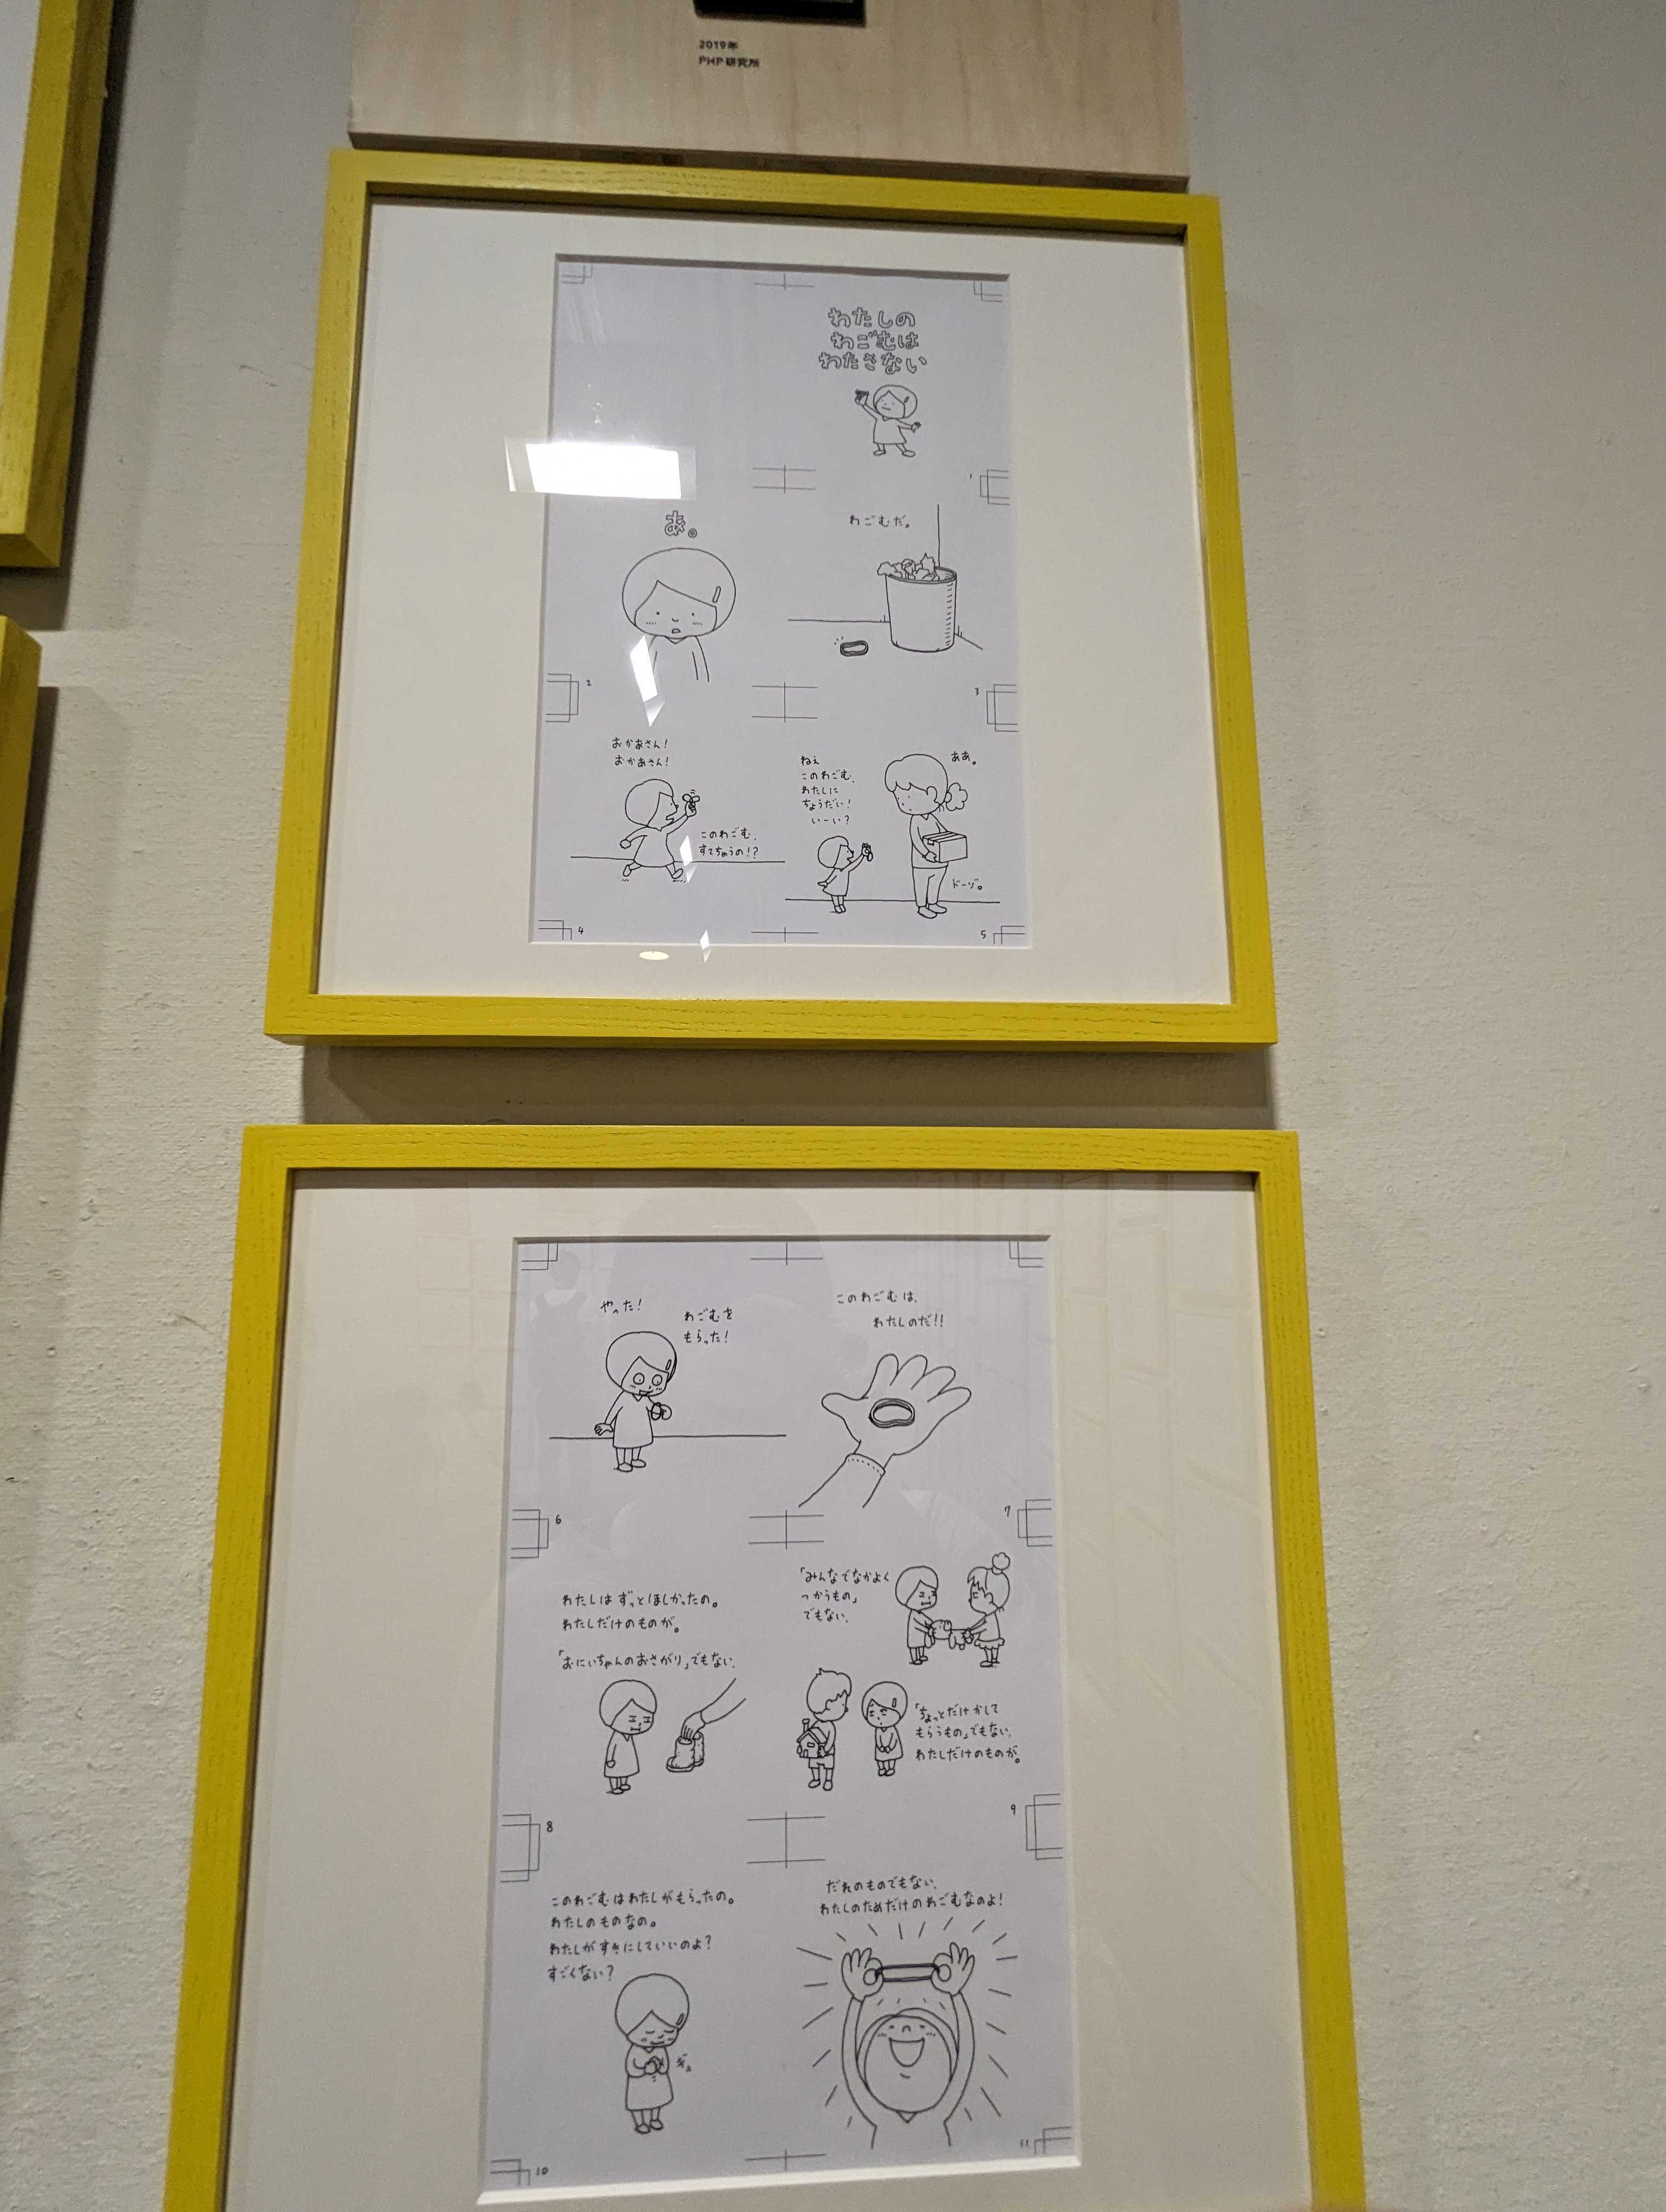 2019年
PHP研究所
わたしの
わごむは
わたさない
1
あ。
2
わごむだ。
3
おかあさん！
おかあさん！
このわごむ、
すてちゃうの！？
4
ねぇ
このわごむ、
わたしに
ちょうだい！
いーい？
ああ。
ドーゾ。
5
やった！
わごむを
もらった！
6
このわごむは、
わたしのだ!!
7
わたしは ずっと ほしかったの。
わたしだけのものが。
「おにいちゃんのおさがり」でもない、
8
「みんなでなかよく
つかうもの」
でもない、
「ちょっとだけ かして
もらうもの」でもない、
わたしだけのものが。
9
このわごむはわたしがもらったの。
わたしのものなの。
わたしがすきにしていいのよ？
すごくない？
ぎゅ
10
だれのものでもない、
わたしのためだけのわごむなのよ！
11